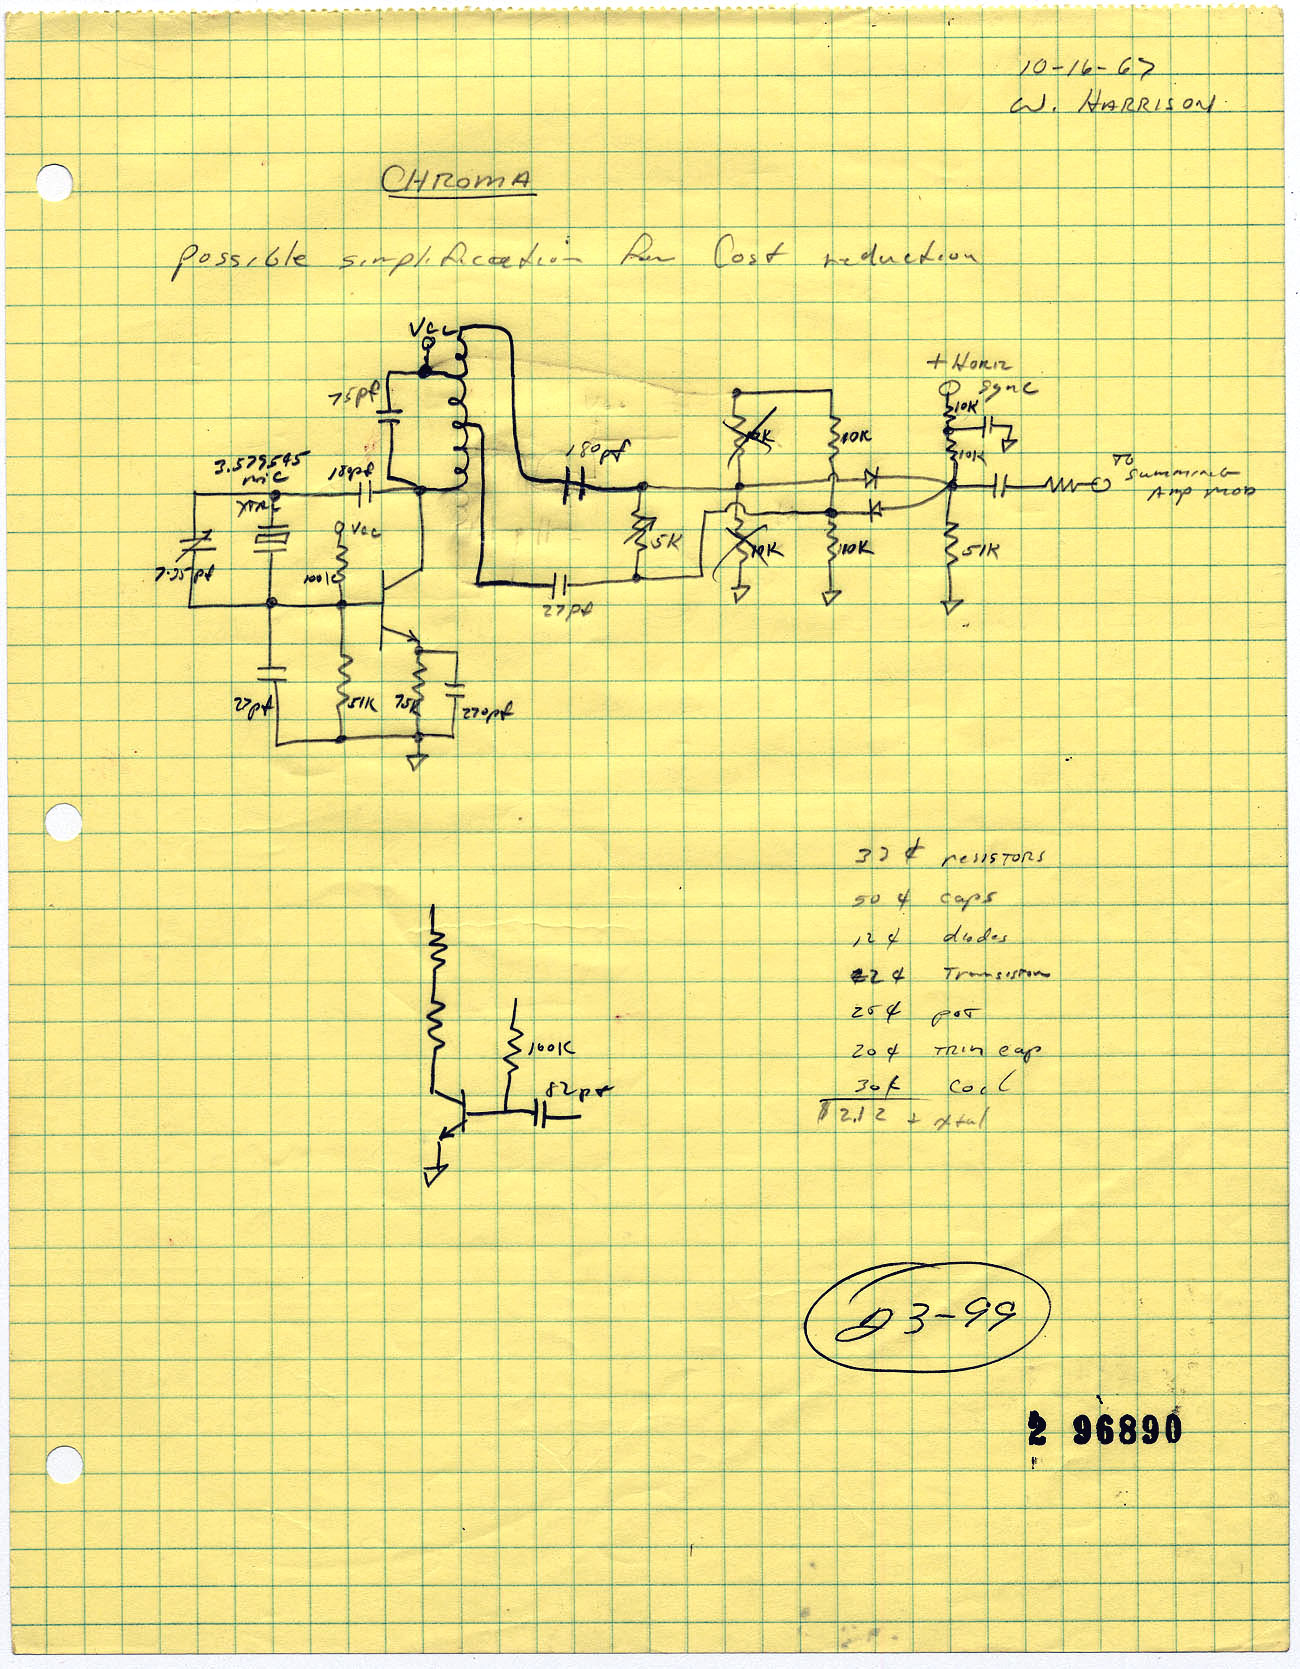 10-16-67
W. HARRISON
CHROMA
possible simplification for Cost reduction
Vcc
75pf
3.579545
mc
XTAL
180pf
Vcc
100K
7-25pf
27pf
51K
75K
270pf
180pf
5K
27pf
10K
10K
10K
10K
+ HORIZ
Sync
10K
10K
51K
To
Summing
Amp mod
33 ¢ resistors
50 ¢ caps
12 ¢ diodes
22 ¢ Transistor
25 ¢ pot
20 ¢ TRIM cap
30 ¢ Coil
$2.12 + xtal
100K
82pf
23-99
2 96890